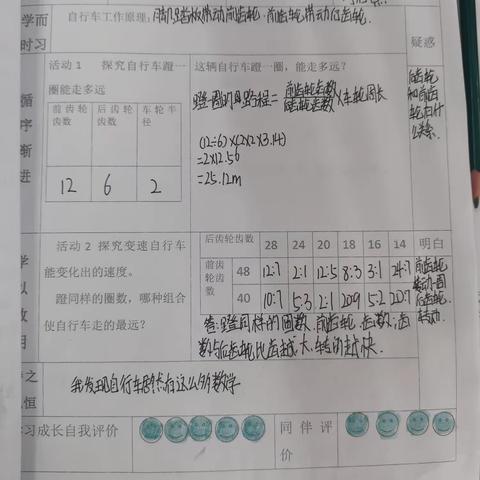 学而时习
自行车工作原理:脚踏板带动前齿轮,前齿轮带动后齿轮.
疑惑
循序渐进
活动 1 探究自行车蹬一圈能走多远
前齿轮齿数 后齿轮齿数 车轮半径
12 6 2
这辆自行车蹬一圈,能走多远?
蹬一圈的路程=前齿轮齿数/后齿轮齿数×车轮周长
(12÷6)×(2×2×3.14)
=2×12.56
=25.12m
后齿轮和前齿轮有什么关系.
学以致用
活动 2 探究变速自行车能变化出的速度。
蹬同样的圈数,哪种组合使自行车走的最远?
后齿轮齿数 28 24 20 18 16 14
前齿轮齿数
48 12:7 2:1 12:5 8:3 3:1 24:7
40 10:7 5:3 2:1 20:9 5:2 20:7
答:蹬同样的圈数,前齿轮齿数:齿数与后齿轮比
大,转的
快.
明白
前齿轮转动一圈后齿轮转动.
之恒
我发现自行车居然有这么多数学
习成长自我评价
同伴评价